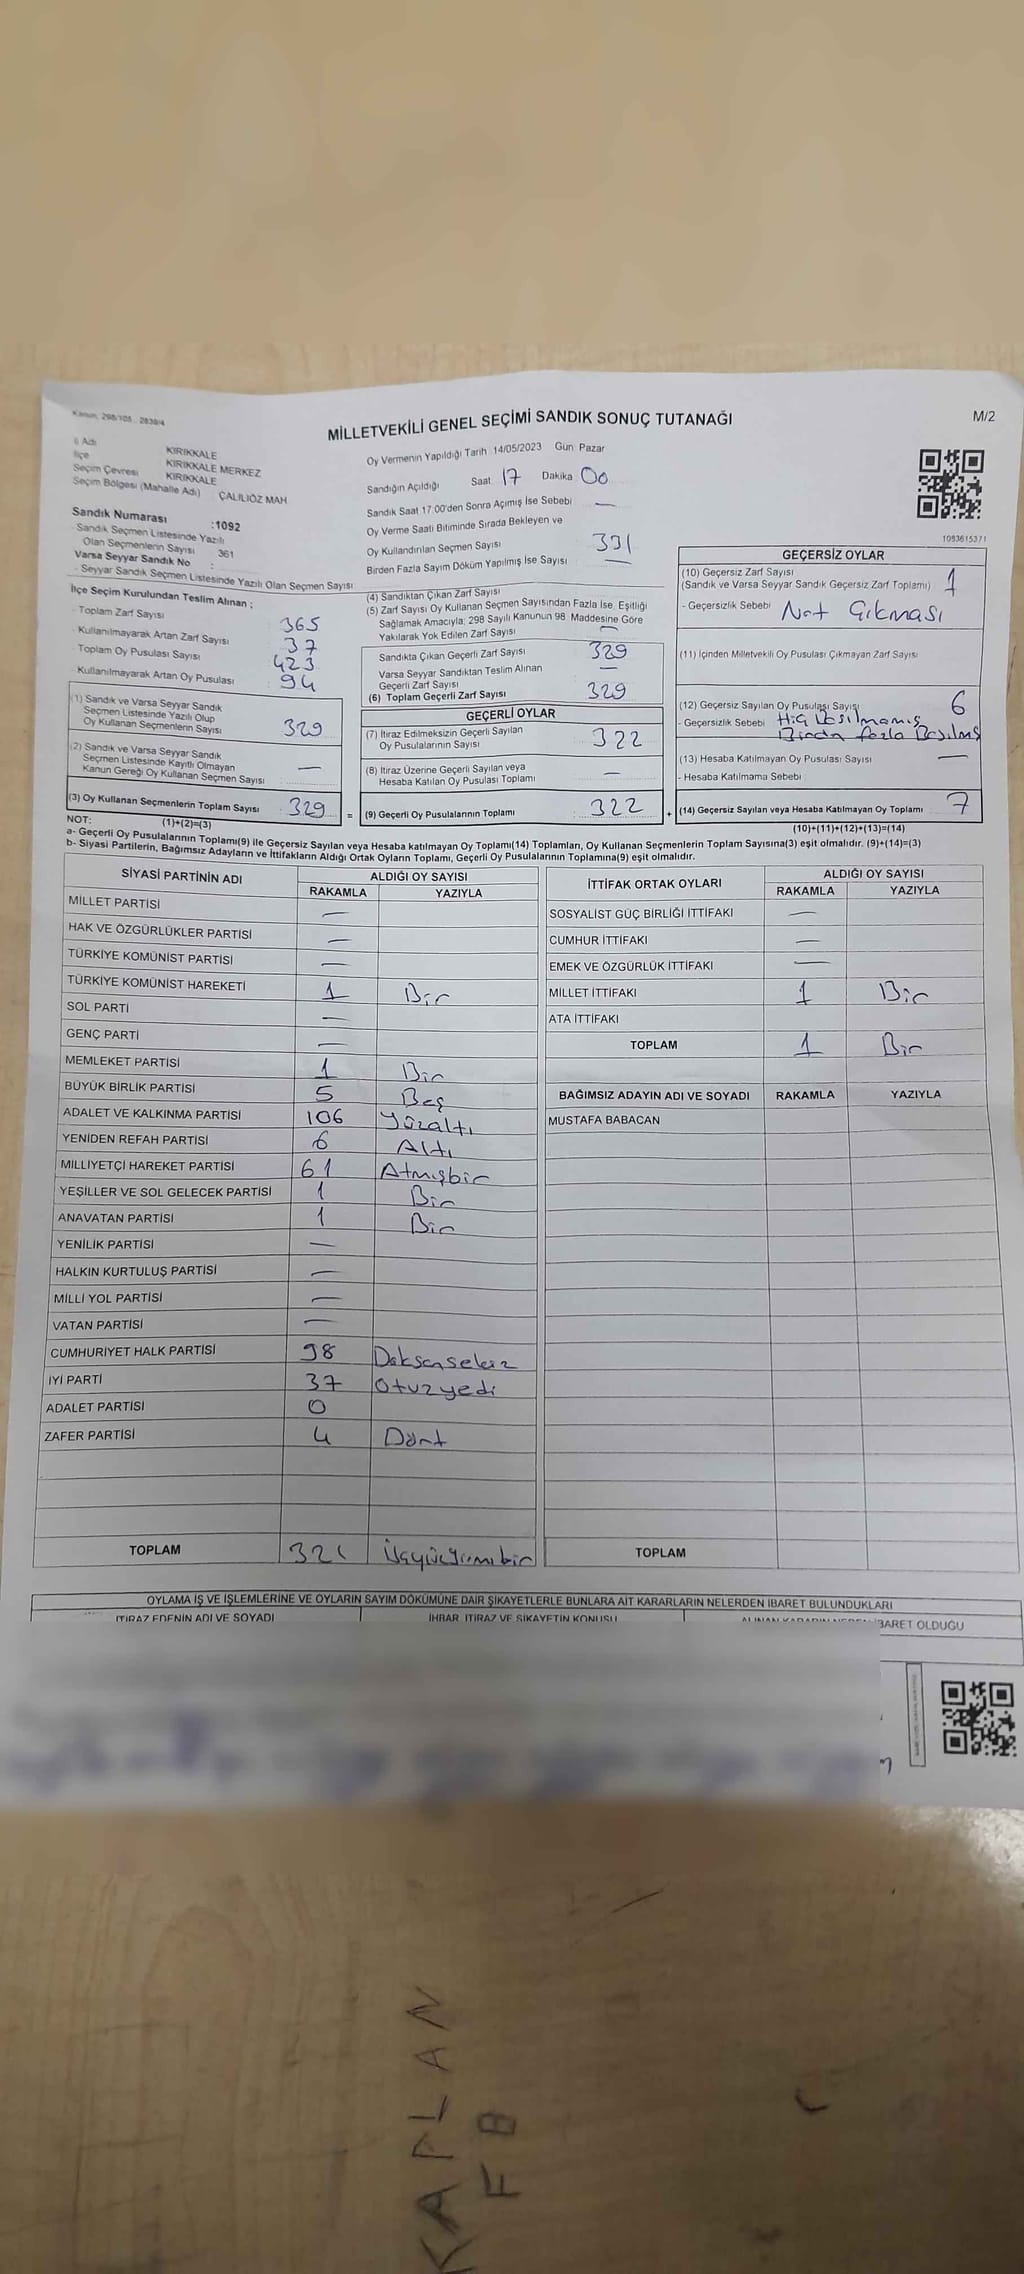 Kanun, 298/105 , 2839/4
MİLLETVEKİLİ GENEL SEÇİMİ SANDIK SONUÇ TUTANAĞI
M/2
İl Adı KIRIKKALE
İlçe KIRIKKALE MERKEZ
Seçim Çevresi KIRIKKALE
Seçim Bölgesi (Mahalle Adı) : ÇALILIÖZ MAH
Sandık Numarası :1092
- Sandık Seçmen Listesinde Yazılı
Olan Seçmenlerin Sayısı 361
Varsa Seyyar Sandık No :
- Seyyar Sandık Seçmen Listesinde Yazılı Olan Seçmen Sayısı
Oy Vermenin Yapıldığı Tarih 14/05/2023 Gün Pazar
Sandığın Açıldığı Saat 17 Dakika 00
Sandık Saat 17:00'den Sonra Açımış İse Sebebi —
Oy Verme Saati Bitiminde Sırada Bekleyen ve
Oy Kullandırılan Seçmen Sayısı 331
Birden Fazla Sayım Döküm Yapılmış İse Sayısı —
1083615371
İlçe Seçim Kurulundan Teslim Alınan ;
- Toplam Zarf Sayısı 365
- Kullanılmayarak Artan Zarf Sayısı 37
- Toplam Oy Pusulası Sayısı 423
- Kullanılmayarak Artan Oy Pusulası 94
(1) Sandık ve Varsa Seyyar Sandık
Seçmen Listesinde Yazılı Olup
Oy Kullanan Seçmenlerin Sayısı 329
(2) Sandık ve Varsa Seyyar Sandık
Seçmen Listesinde Kayıtlı Olmayan
Kanun Gereği Oy Kullanan Seçmen Sayısı —
(3) Oy Kullanan Seçmenlerin Toplam Sayısı 329 =
(4) Sandıktan Çıkan Zarf Sayısı
(5) Zarf Sayısı Oy Kullanan Seçmen Sayısından Fazla İse, Eşitliği
Sağlamak Amacıyla; 298 Sayılı Kanunun 98. Maddesine Göre
Yakılarak Yok Edilen Zarf Sayısı —
Sandıkta Çıkan Geçerli Zarf Sayısı 329
Varsa Seyyar Sandıktan Teslim Alınan
Geçerli Zarf Sayısı —
(6) Toplam Geçerli Zarf Sayısı 329
GEÇERLİ OYLAR
(7) İtiraz Edilmeksizin Geçerli Sayılan
Oy Pusulalarının Sayısı 322
(8) İtiraz Üzerine Geçerli Sayılan veya
Hesaba Katılan Oy Pusulası Toplamı —
(9) Geçerli Oy Pusulalarının Toplamı 322 +
GEÇERSİZ OYLAR
(10) Geçersiz Zarf Sayısı
(Sandık ve Varsa Seyyar Sandık Geçersiz Zarf Toplamı) 1
- Geçersizlik Sebebi Not Çıkması
(11) İçinden Milletvekili Oy Pusulası Çıkmayan Zarf Sayısı
(12) Geçersiz Sayılan Oy Pusulası Sayısı 6
- Geçersizlik Sebebi Hiç Basılmamış
Birden fazla Basılmış
(13) Hesaba Katılmayan Oy Pusulası Sayısı —
- Hesaba Katılmama Sebebi
(14) Geçersiz Sayılan veya Hesaba Katılmayan Oy Toplamı 7
NOT: (1)+(2)=(3)
(10)+(11)+(12)+(13)=(14)
a- Geçerli Oy Pusulalarının Toplamı(9) ile Geçersiz Sayılan veya Hesaba katılmayan Oy Toplamı(14) Toplamları, Oy Kullanan Seçmenlerin Toplam Sayısına(3) eşit olmalıdır. (9)+(14)=(3)
b- Siyasi Partilerin, Bağımsız Adayların ve İttifakların Aldığı Ortak Oyların Toplamı, Geçerli Oy Pusulalarının Toplamına(9) eşit olmalıdır.
SİYASİ PARTİNİN ADI ALDIĞI OY SAYISI
RAKAMLA YAZIYLA
MİLLET PARTİSİ —
HAK VE ÖZGÜRLÜKLER PARTİSİ —
TÜRKİYE KOMÜNİST PARTİSİ —
TÜRKİYE KOMÜNİST HAREKETİ 1 Bir
SOL PARTİ —
GENÇ PARTİ —
MEMLEKET PARTİSİ 1 Bir
BÜYÜK BİRLİK PARTİSİ 5 Beş
ADALET VE KALKINMA PARTİSİ 106 Yüzaltı
YENİDEN REFAH PARTİSİ 6 Altı
MİLLİYETÇİ HAREKET PARTİSİ 61 Atmışbir
YEŞİLLER VE SOL GELECEK PARTİSİ 1 Bir
ANAVATAN PARTİSİ 1 Bir
YENİLİK PARTİSİ —
HALKIN KURTULUŞ PARTİSİ —
MİLLİ YOL PARTİSİ —
VATAN PARTİSİ —
CUMHURİYET HALK PARTİSİ 98 Doksansekiz
İYİ PARTİ 37 Otuzyedi
ADALET PARTİSİ 0
ZAFER PARTİSİ 4 Dört
TOPLAM 321 Üçyüzyirmibir
İTTİFAK ORTAK OYLARI ALDIĞI OY SAYISI
RAKAMLA YAZIYLA
SOSYALİST GÜÇ BİRLİĞİ İTTİFAKI —
CUMHUR İTTİFAKI —
EMEK VE ÖZGÜRLÜK İTTİFAKI —
MİLLET İTTİFAKI 1 Bir
ATA İTTİFAKI
TOPLAM 1 Bir
BAĞIMSIZ ADAYIN ADI VE SOYADI RAKAMLA YAZIYLA
MUSTAFA BABACAN
TOPLAM
OYLAMA İŞ VE İŞLEMLERİNE VE OYLARIN SAYIM DÖKÜMÜNE DAİR ŞİKAYETLERLE BUNLARA AİT KARARLARIN NELERDEN İBARET BULUNDUKLARI
İTİRAZ EDENİN ADI VE SOYADI İHBAR, İTİRAZ VE ŞİKAYETİN KONUSU ALINAN KARARIN NEDEN İBARET OLDUĞU
KAPLAN
FB